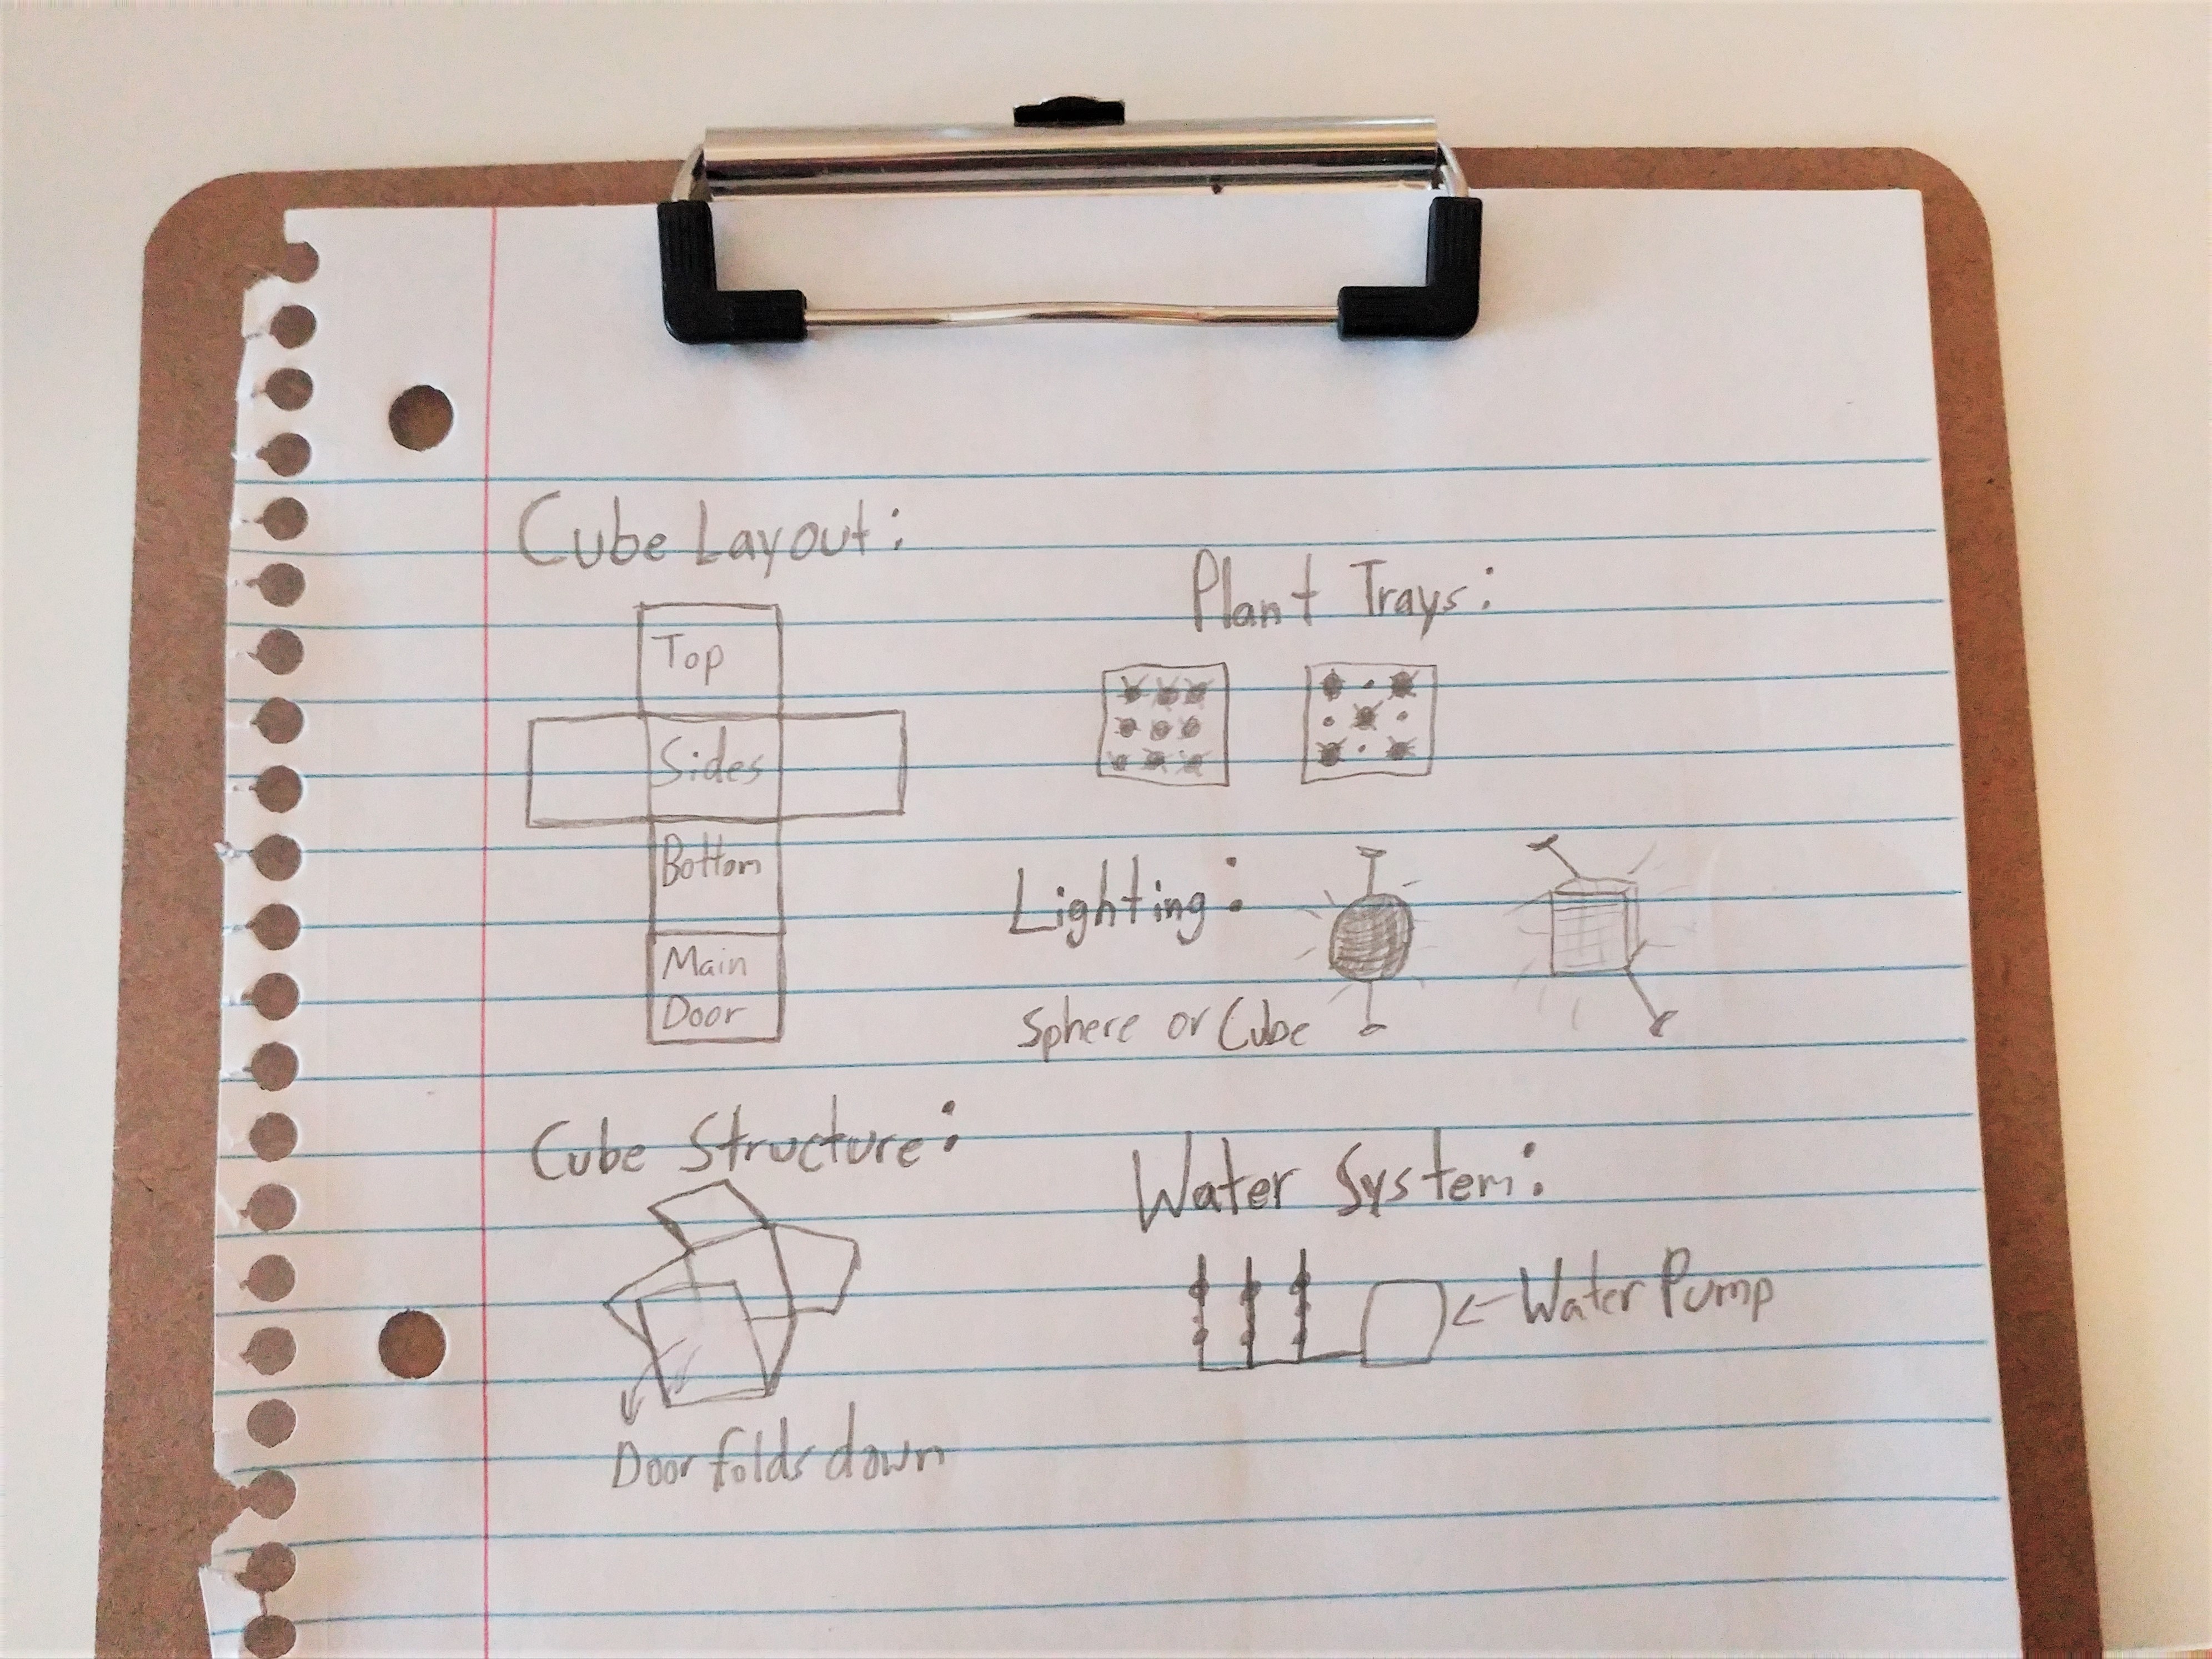 Cube Layout:
Top
Sides
Bottom
Main
Door
Plant Trays:
Lighting:
Sphere or Cube
Cube Structure:
Door folds down
Water System:
Water Pump